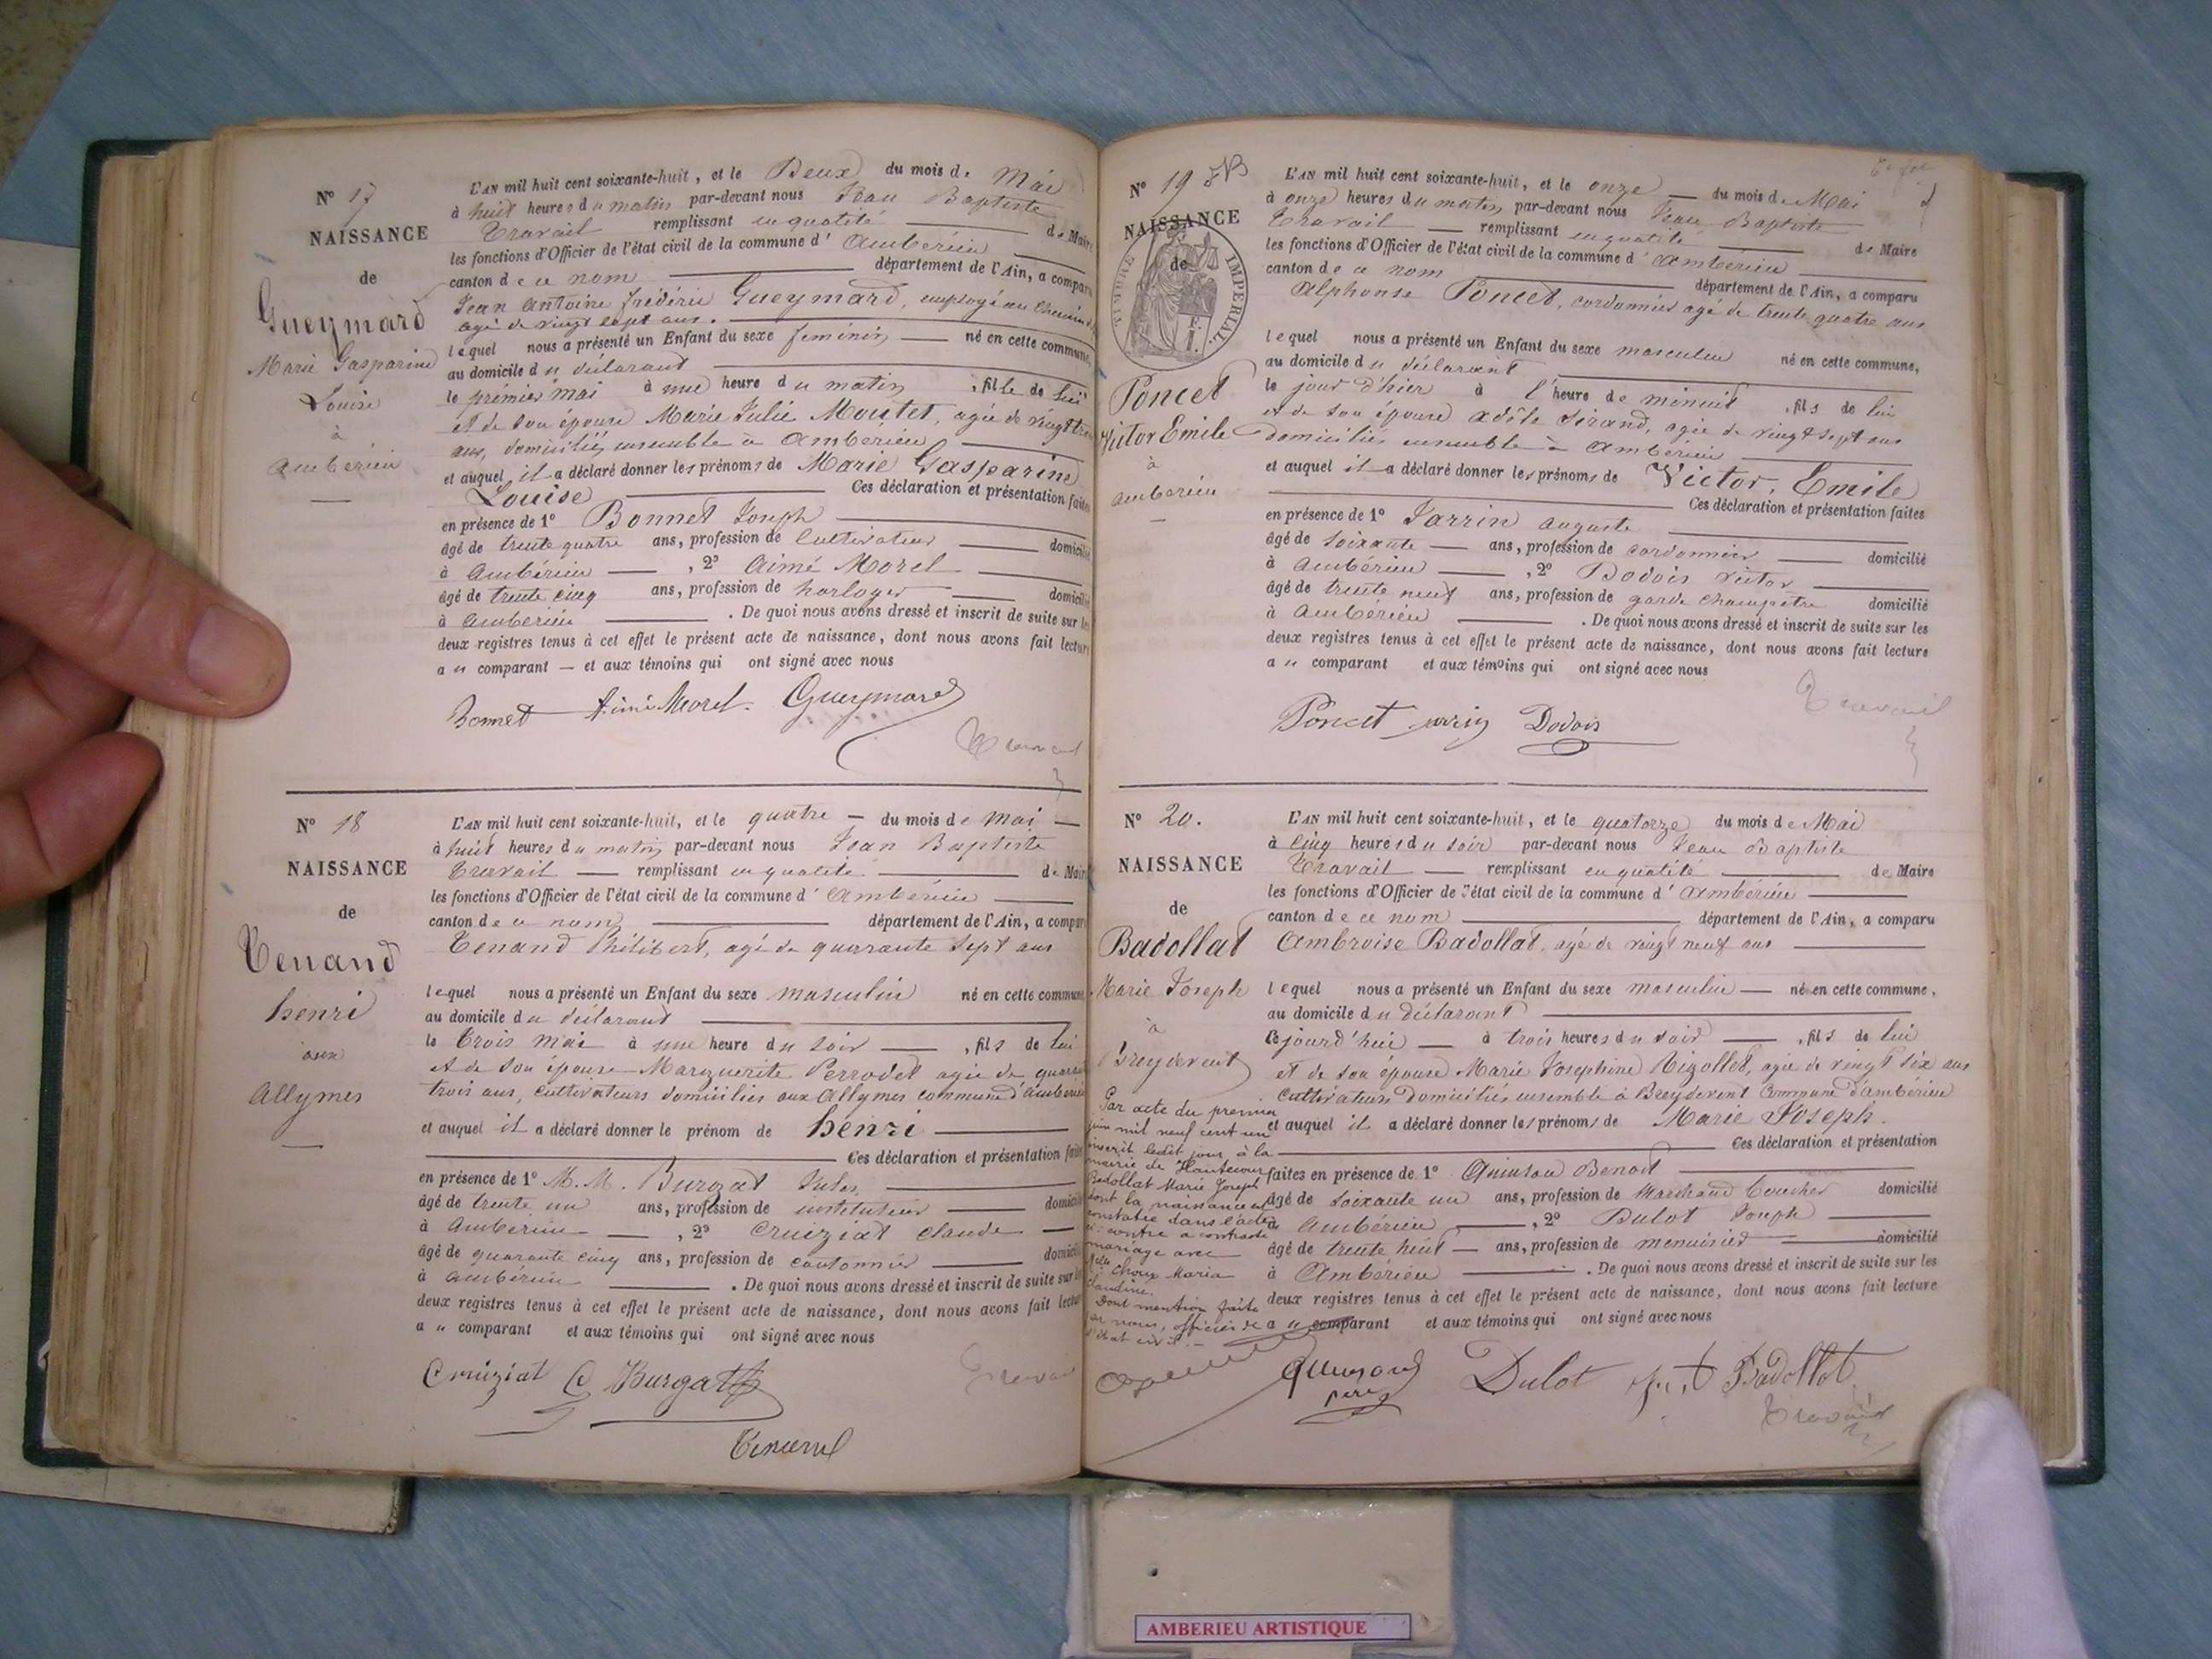 N° 17
NAISSANCE
de
Gueymard
Marie Gasparine
Louise
à
Ambérieu
L'AN mil huit cent soixante-huit, et le Deux du mois de Mai
à huit heures du matin par-devant nous Jean Baptiste
Travail remplissant en qualité de Maire
les fonctions d'Officier de l'état civil de la commune d'Ambérieu
canton de ce nom département de l'Ain, a comparu
Jean Antoine Frédéric Gueymard, employé au chemin d
agé de vingt sept ans.
lequel nous a présenté un Enfant du sexe féminin né en cette commune,
au domicile du déclarant
le prémier mai à une heure du matin, fille de lui
et de son épouse Marie Julie Moutet, agée de vingt
ans, domiciliés ensemble à Ambérieu
et auquel il a déclaré donner les prénoms de Marie Gasparine
Louise Ces déclaration et présentation faites
en présence de 1° Bonnet Joseph
âgé de trente quatre ans, profession de Cultivateur domicilié
à Ambérieu, 2° Aimé Morel
âgé de trente cinq ans, profession de horloger domicilié
à Ambérieu. De quoi nous avons dressé et inscrit de suite sur les
deux registres tenus à cet effet le présent acte de naissance, dont nous avons fait lecture
au comparant et aux témoins qui ont signé avec nous
Bonnet Aimé Morel. Gueymard
Travail
N° 18
NAISSANCE
de
Tenand
henri
aux
Allymes
L'AN mil huit cent soixante-huit, et le quatre du mois de Mai
à huit heures du matin par-devant nous Jean Baptiste
Travail remplissant en qualité de Maire
les fonctions d'Officier de l'état civil de la commune d'Ambérieu
canton de ce nom département de l'Ain, a comparu
Tenand Philibert, agé de quarante sept ans
lequel nous a présenté un Enfant du sexe masculin né en cette commune
au domicile du déclarant
le Trois mai à une heure du soir, fils de lui
et de son épouse Marguerite Perrodet agée de quarante
trois ans, cultivateurs domiciliés aux Allymes commune d'Ambérieu
et auquel il a déclaré donner le prénom de henri
Ces déclaration et présentation faites
en présence de 1° M. M. Burgat Jules
âgé de trente un ans, profession de instituteur domicilié
à Ambérieu, 2° Cruiziat Claude
âgé de quarante cinq ans, profession de cantonnier domicilié
à Ambérieu. De quoi nous avons dressé et inscrit de suite sur les
deux registres tenus à cet effet le présent acte de naissance, dont nous avons fait lecture
au comparant et aux témoins qui ont signé avec nous
Cruiziat C Burgat
Travail
Tenand
N° 19
NAISSANCE
de
TIMBRE IMPERIAL
Poncet
Victor Emile
à
Ambérieu
L'AN mil huit cent soixante-huit, et le onze du mois de Mai
à onze heures du matin, par-devant nous Jean Baptiste
Travail remplissant en qualité de Maire
les fonctions d'Officier de l'état civil de la commune d'Ambérieu
canton de ce nom département de l'Ain, a comparu
Alphonse Poncet, cordonnier agé de trente quatre ans
lequel nous a présenté un Enfant du sexe masculin né en cette commune,
au domicile du déclarant
le jour d'hier à l'heure de minuit, fils de lui
et de son épouse Adèle Sirand, agée de vingt sept ans
domiciliés ensemble à Ambérieu
et auquel il a déclaré donner les prénoms de Victor, Emile
Ces déclaration et présentation faites
en présence de 1° Jarrin Auguste
âgé de soixante ans, profession de cordonnier domicilié
à Ambérieu, 2° Dodois Victor
âgé de trente neuf ans, profession de garde champêtre domicilié
à Ambérieu. De quoi nous avons dressé et inscrit de suite sur les
deux registres tenus à cet effet le présent acte de naissance, dont nous avons fait lecture
au comparant et aux témoins qui ont signé avec nous
Poncet Jarrin Dodois
Travail
N° 20.
NAISSANCE
de
Badollat
Marie Joseph
à
Breydevent
Par acte du premier
juin mil neuf cent un
inscrit ledit jour à la
mairie de Hautecour
Badollat Marie Joseph
dont la naissance est
constatée dans l'acte
ci-contre a contracté
mariage avec
Choux Maria
Claudine.
Dont mention faite
par nous, officier de
l'état civil.
L'AN mil huit cent soixante-huit, et le quatorze du mois de Mai
à cinq heures du soir par-devant nous Jean Baptiste
Travail remplissant en qualité de Maire
les fonctions d'Officier de l'état civil de la commune d'Ambérieu
canton de ce nom département de l'Ain, a comparu
Ambroise Badollat, agé de vingt neuf ans
lequel nous a présenté un Enfant du sexe masculin né en cette commune,
au domicile du déclarant
cejourd'hui à trois heures du soir, fils de lui
et de son épouse Marie Josephine Nizollet, agée de vingt six ans
Cultivateurs Domiciliés ensemble à Breydevent Commune d'Ambérieu
et auquel il a déclaré donner les prénoms de Marie Joseph.
Ces déclaration et présentation
faites en présence de 1° Quinson Benoit
âgé de soixante un ans, profession de Marchand boucher domicilié
à Ambérieu, 2° Dulot Joseph
âgé de trente huit ans, profession de menuisier domicilié
à Ambérieu. De quoi nous avons dressé et inscrit de suite sur les
deux registres tenus à cet effet le présent acte de naissance, dont nous avons fait lecture
au comparant et aux témoins qui ont signé avec nous
père Dulot Badollat
Travail
AMBERIEU ARTISTIQUE